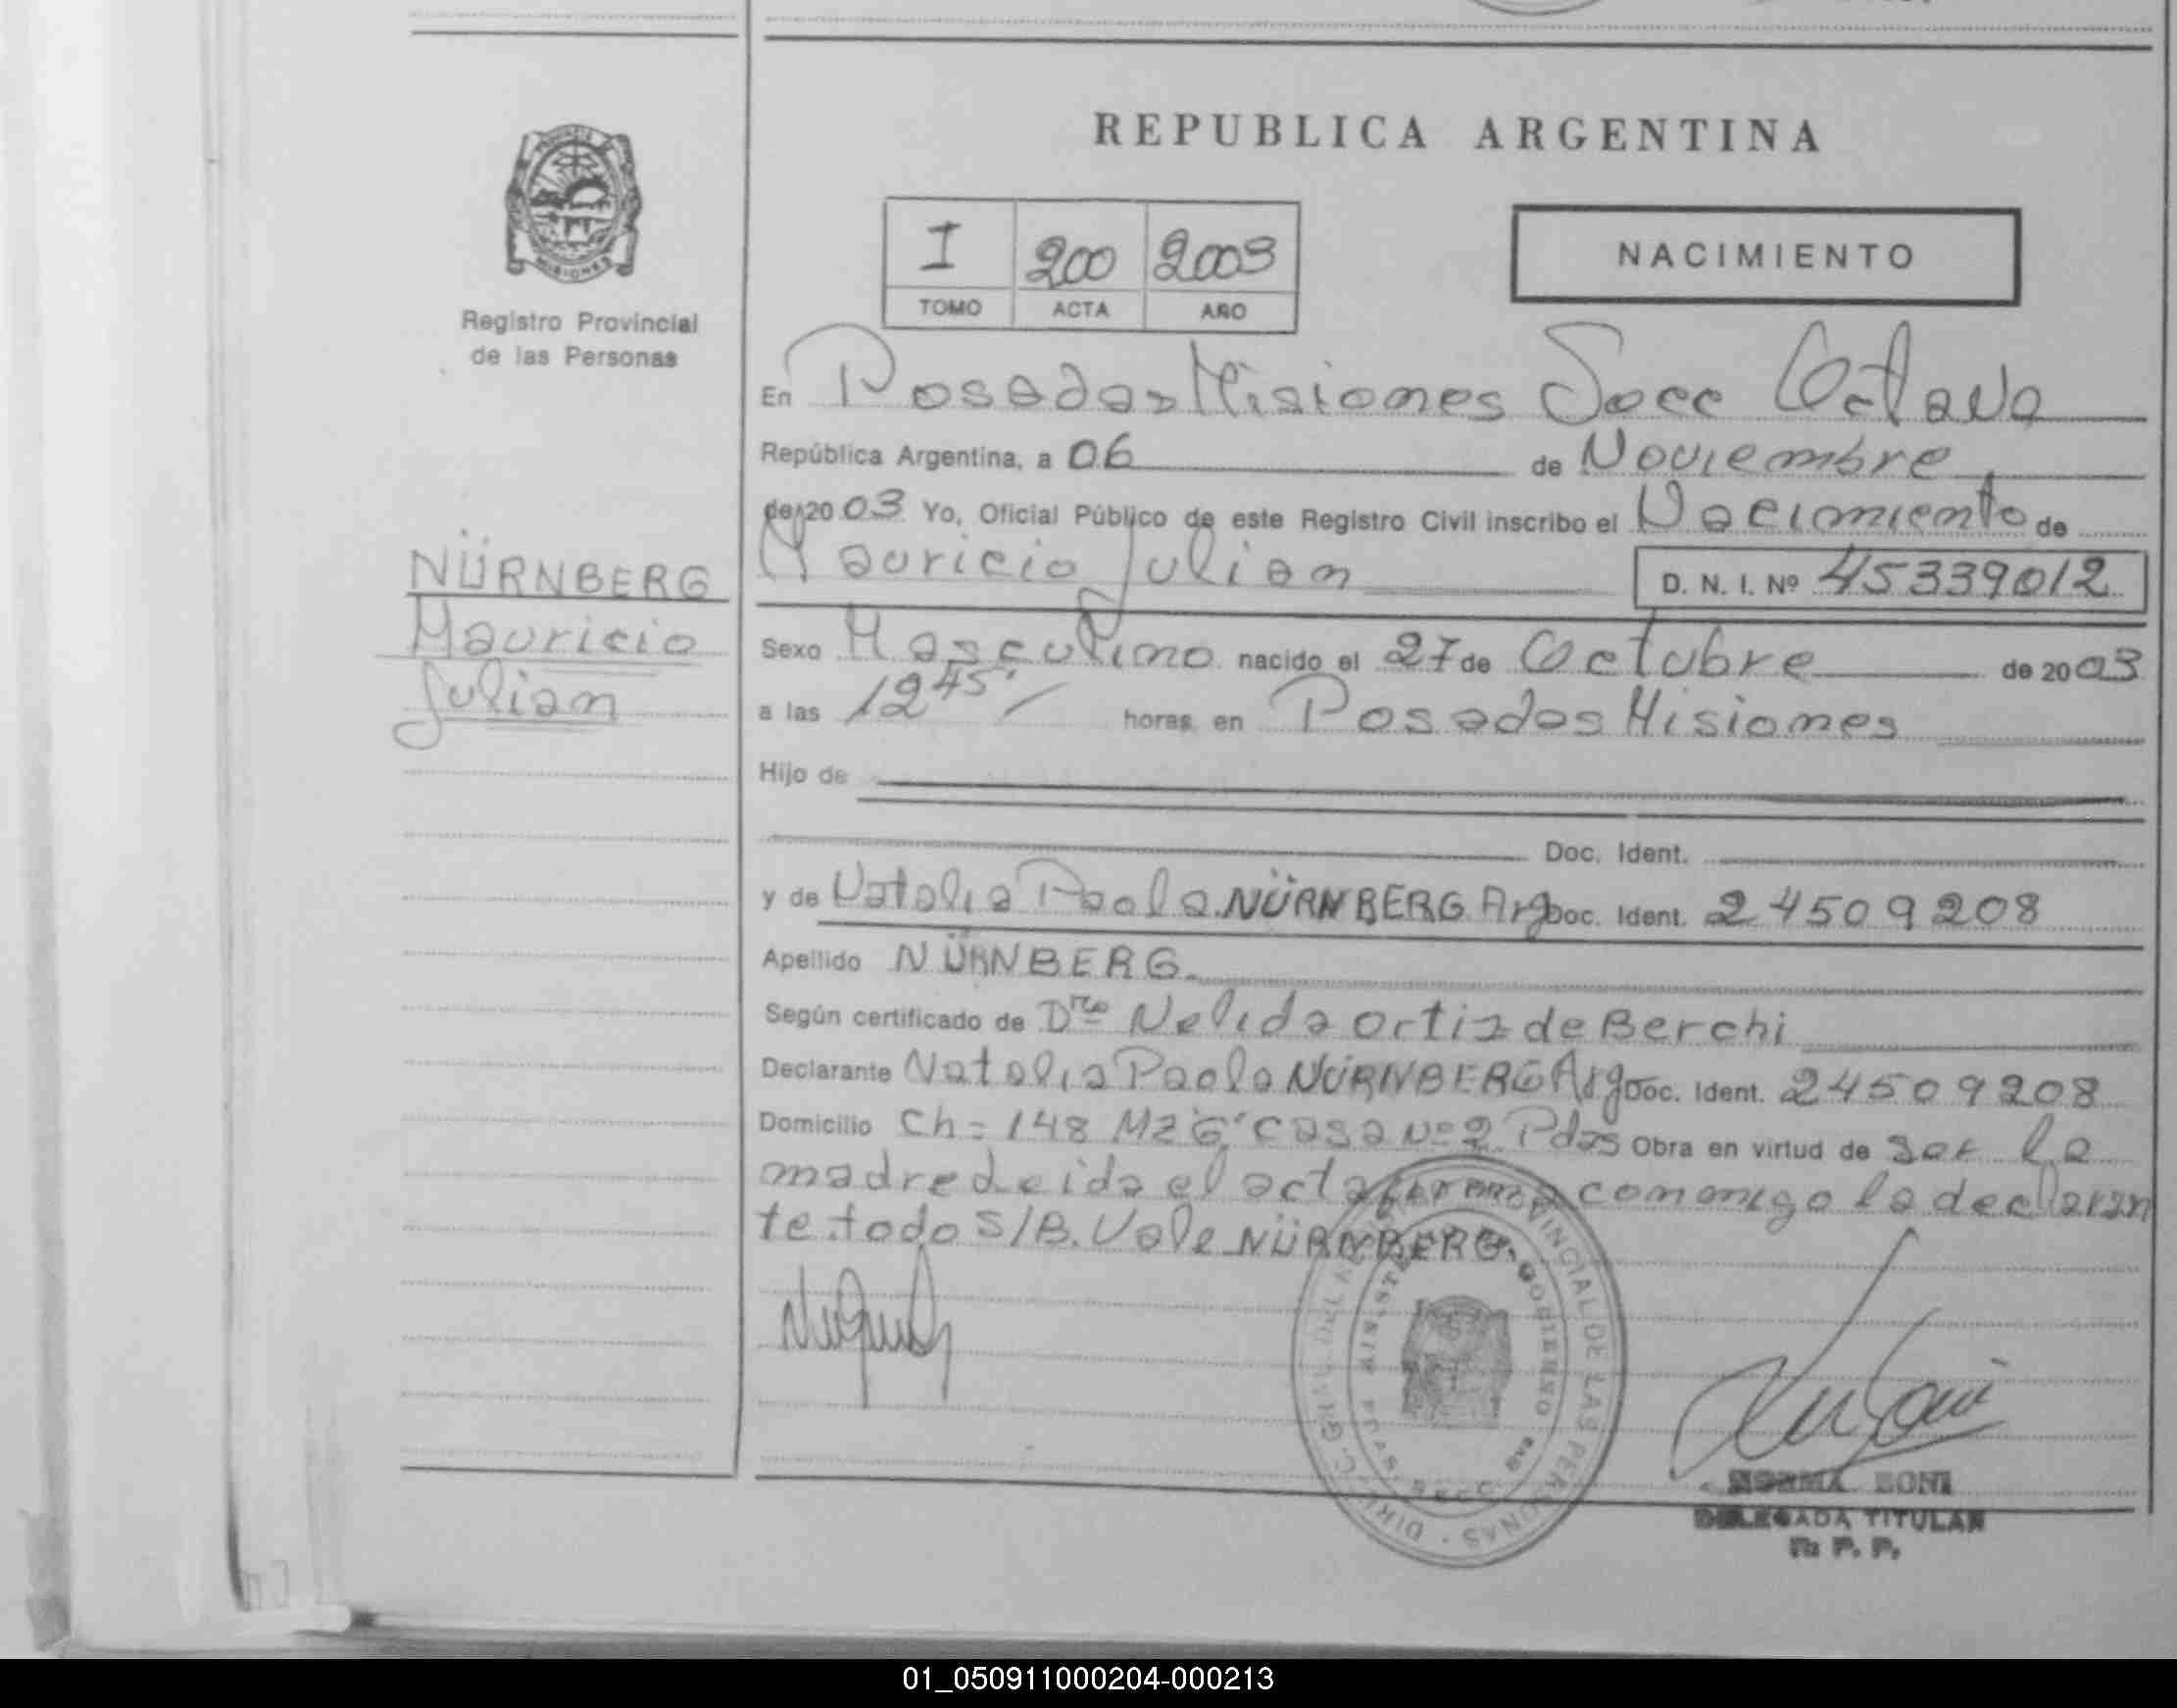 REPUBLICA ARGENTINA
I 200 2003
TOMO ACTA AÑO
NACIMIENTO
PROVINCIA DE MISIONES
Registro Provincial
de las Personas
NÜRNBERG
Mauricio
Julian
En Posadas Misiones Secc Octava
República Argentina, a 06 de Noviembre
de 2003 Yo, Oficial Público de este Registro Civil inscribo el Nacimiento de
Mauricio Julian D. N. I. Nº 45339012
Sexo Masculino nacido el 27 de Octubre de 2003
a las 12 45' horas en Posadas Misiones
Hijo de
Doc. Ident.
y de Natalia Paola NÜRNBERG Arg Doc. Ident. 24509208
Apellido NÜRNBERG
Según certificado de Dra Nelida Ortiz de Berchi
Declarante Natalia Paola NÜRNBERG Arg Doc. Ident. 24509208
Domicilio Ch= 148 Mz G' casa Nº 2 Pdas Obra en virtud de ser la
madre Leida el acta firma conmigo la declaran
te. todo S/B. Vale NÜRNBERG.
DIREC. GRAL. DEL REGISTRO PROVINCIAL DE LAS PERSONAS
NORMA BONI
DELEGADA TITULAR
R. P. P.
01_050911000204-000213